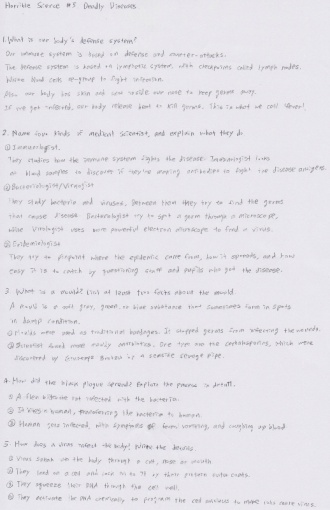 Horrible Science #5 Deadly Diseases
1. What is our body's defense system?
Our immune system is based on defense and counter-attacks.
The defense system is based on lymphatic system, with checkpoints called lymph nodes.
White blood cells re-group to fight infection.
Also our body has skin and
to keep germs away.
If we get infected, our body release heat to kill germs. This is what we call 'fever'.
2. Name four kinds of medical scientist, and explain what they do
① Immunologist.
They studies how the immune system fights the disease. Immunologist
blood samples to discover if they're making antibodies to fight the disease
② Bacteriologist/Virologist
They study bacteria and viruses. Between them they try to find the germs
that cause disease. Bacteriologist try to spot a germ through a microscope,
while Virologist uses more powerful electron microscope to find a virus.
③ Epidemiologist
They try to pinpoint where the epidemic came from, how it spreads, and how
easy it is to catch by questioning staff and pupils who got the disease.
3. What is a mould? List at least two facts about the mould.
A mould is a
grey, green, or blue substance that sometimes form in spots
in damp condition.
① Moulds were used as traditional bandages. It stopped germs from infecting the wounds.
② Scientist found more mouldy antibiotics. One type was the cephalosporins, which were
discovered by Giuseppe Brotzu in a seaside sewage pipe.
4. How did the black plague spread? Explain the process in detail.
① A flea bites
rat infected with the bacteria.
② It bites a human, transferring the bacteria to human.
③ Human gets infected, with symptoms of fever, vomiting, and coughing up blood
5. How does a virus infect the body? Write the details.
① Virus
the body through a cut, nose or mouth.
② They land on a cell and
to it by their protein outer coats.
③ They squeeze their
through the cell wall.
④ They
to program the cell
to make more viruses.